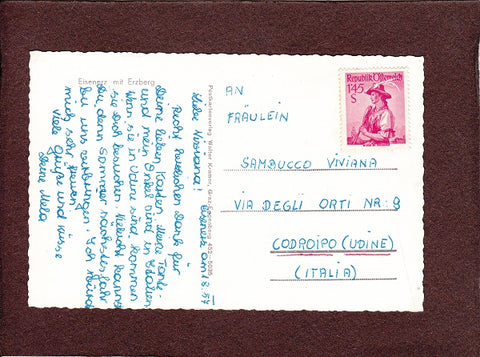 Eisenerz mit Erzberg
Eisenerz am 1.8.57
Liebe Viviana!
Recht herzlichen Dank für
Deine lieben Karten. Meine Tante
und mein Onkel sind in Italien
Wenn sie in Udine sind, kommen
sie Dich besuchen. Vielleicht kannst
Du den Sommer nächstes Jahr
bei uns verbringen. Ich würde
mich sehr freuen
Viele Grüße und Küsse
Deine Mela
Postkartenverlag Walter Kramer, Graz
REPUBLIK ÖSTERREICH
1'45
S
AN
FRÄULEIN
SAMBUCCO VIVIANA
VIA DEGLI ORTI NR: 9
CODROIPO (UDINE)
(ITALIA)